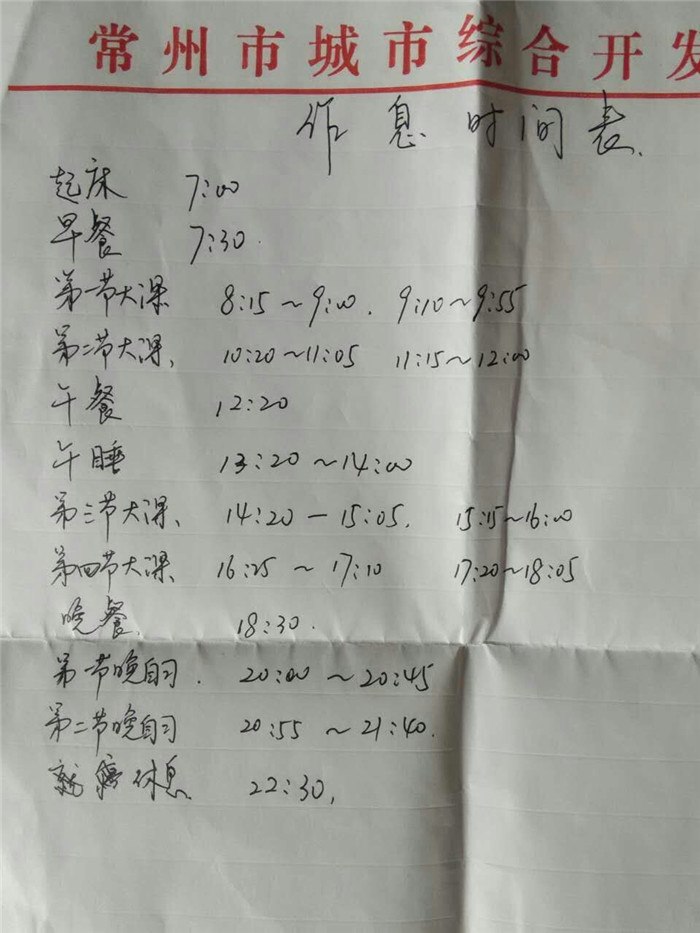 常州市城市综合开发
作息时间表.
起床 7:00
早餐 7:30.
第一节大课 8:15~9:00. 9:10~9:55
第二节大课、 10:20~11:05 11:15~12:00
午餐 12:20
午睡 13:20~14:00
第三节大课、 14:20-15:05. 15:15~16:00
第四节大课、 16:25~17:10 17:20~18:05
晚餐. 18:30.
第一节晚自习. 20:00~20:45
第二节晚自习 20:55~21:40.
就寝休息 22:30.